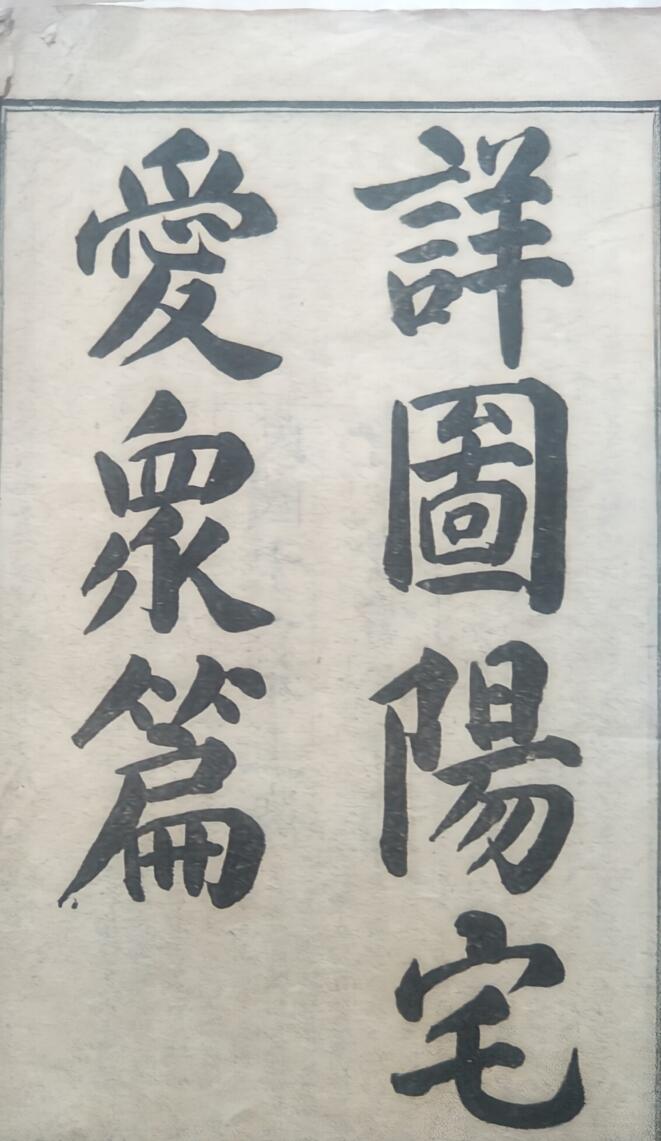 詳圖陽宅
愛衆篇